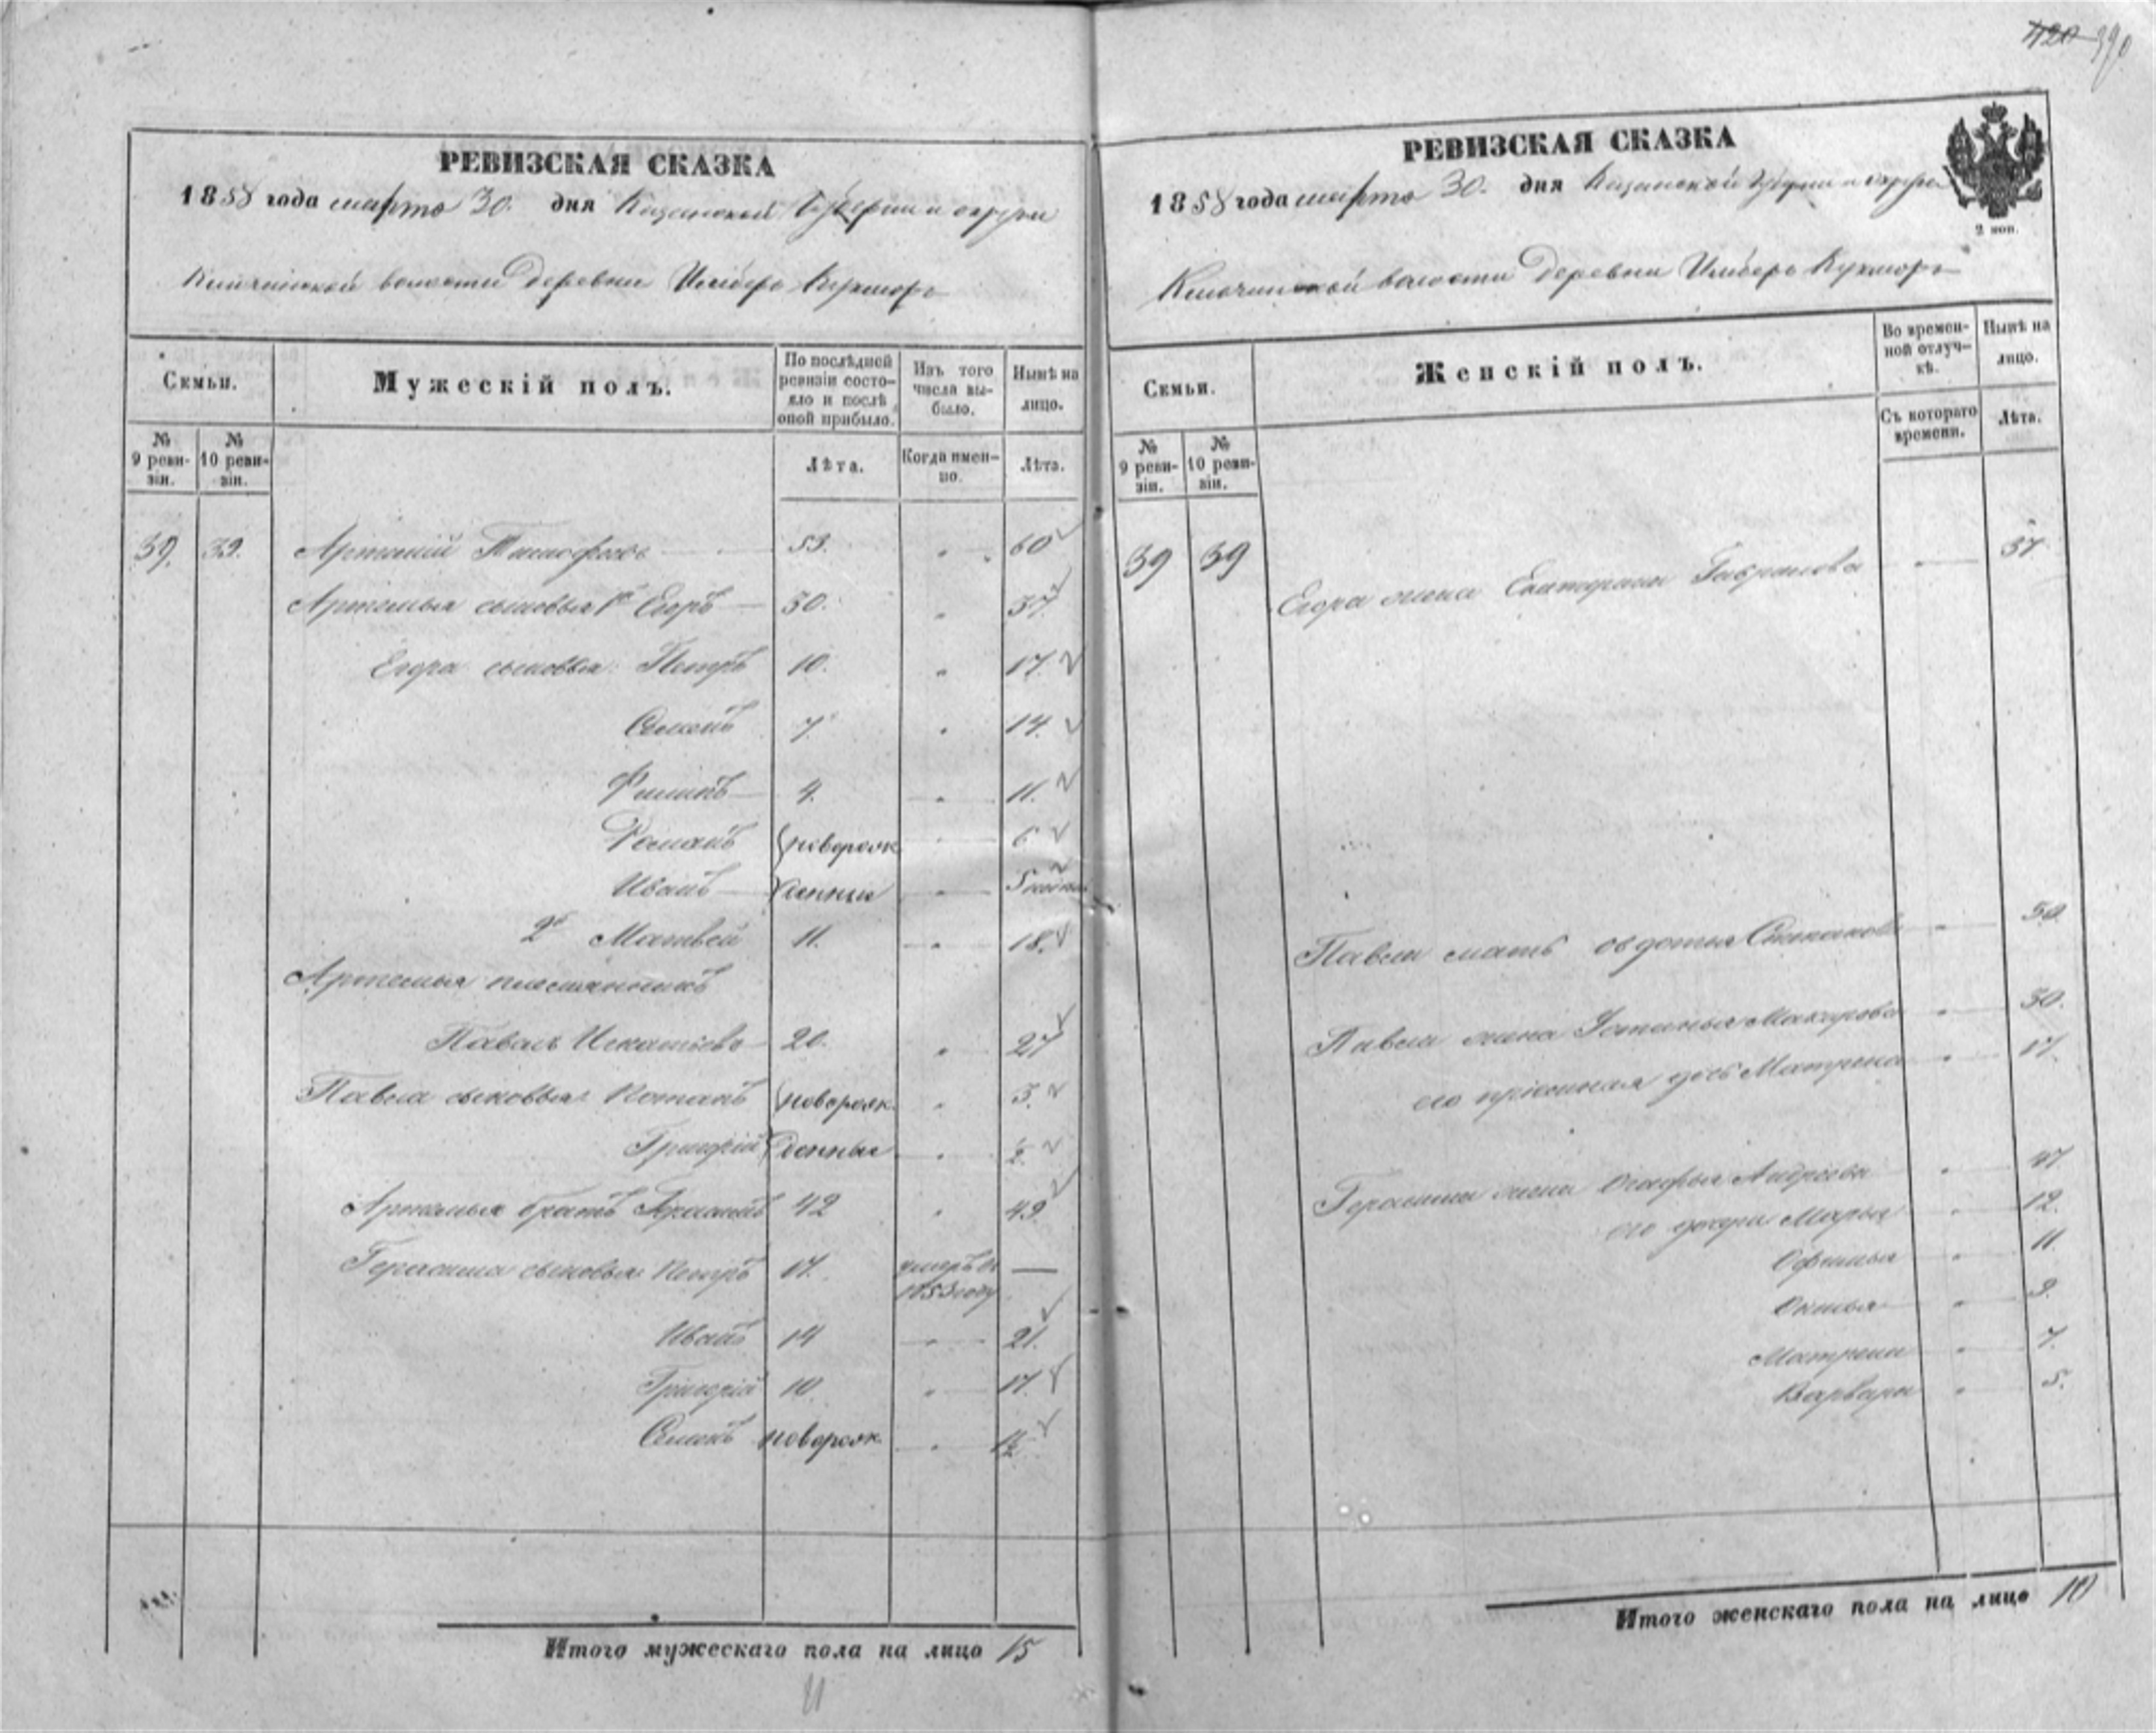 390
РЕВИЗСКАЯ СКАЗКА
1858 года марта 30. дня Казанской Губернии и округи
волости деревни Кукморъ
Семьи.
Мужескій полъ.
По послѣдней ревизіи состо-
яло и послѣ
оной прибыло.
Изъ того
числа вы-
было.
Нынѣ на
лицо.
№
9 реви-
зіи.
№
10 реви-
зіи.
Лѣта.
Когда имен-
но.
Лѣта.
39. 39. Артемій 53. " 60
Артемья сыновья 1й Егоръ 30. " 37
Егора сыновья: Петръ 10. " 17.
Семенъ 7. " 14.
Филипъ 4. " 11.
Романъ новорож " 6
Иванъ денные " 5
2й Матвей 11. " 18.
Артемья племянникъ
Павелъ 20. " 27
Павла сыновья: новорож. " 3.
Григорій денные "
Артемья братъ Герасимъ 42 " 49
Герасима сыновья: Петръ 17. умеръ въ —
1853 году
Иванъ 14 " 21.
Григорій 10. " 17.
Семенъ новорож. " 1½
Итого мужескаго пола на лицо 15
РЕВИЗСКАЯ СКАЗКА
1858 года марта 30. дня Казанской Губернии и округи
2 коп.
волости деревни Кукморъ
Семьи.
Женскій полъ.
Во времен-
ной отлуч-
кѣ.
Нынѣ на
лицо.
№
9 реви-
зіи.
№
10 реви-
зіи.
Съ котораго
времени.
Лѣта.
39 39
Егора жена Екатерина Гаврилова " 37
Павла мать Овдотья Степанова " 50.
Павла жена Устинья Макарова " 30.
его пріемная дочь Матрена " 17.
Герасима жена Огафья Андреева " 47
его дочери Марья " 12.
Офимья " 11.
" 9.
Матрена " 7.
Варвара " 5.
Итого женскаго пола на лицо 10